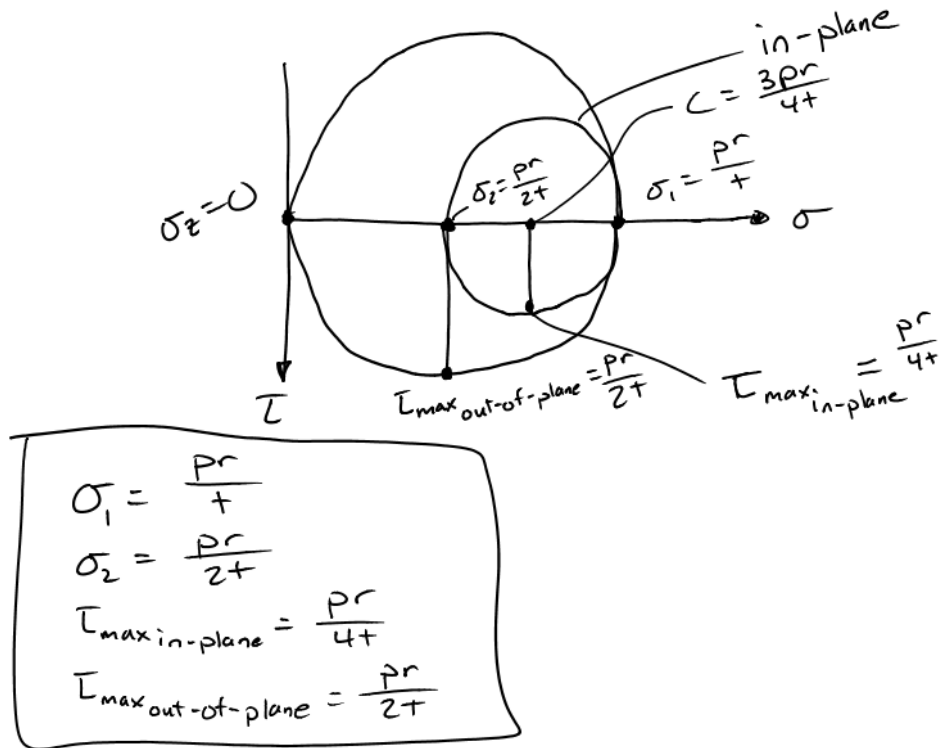 in-plane
C = 3pr/4t
σ₂ = pr/2t
σ₁ = pr/t
σz = 0
σ
τ
τmax out-of-plane = pr/2t
τmax in-plane = pr/4t
σ₁ = pr/t
σ₂ = pr/2t
τmax in-plane = pr/4t
τmax out-of-plane = pr/2t